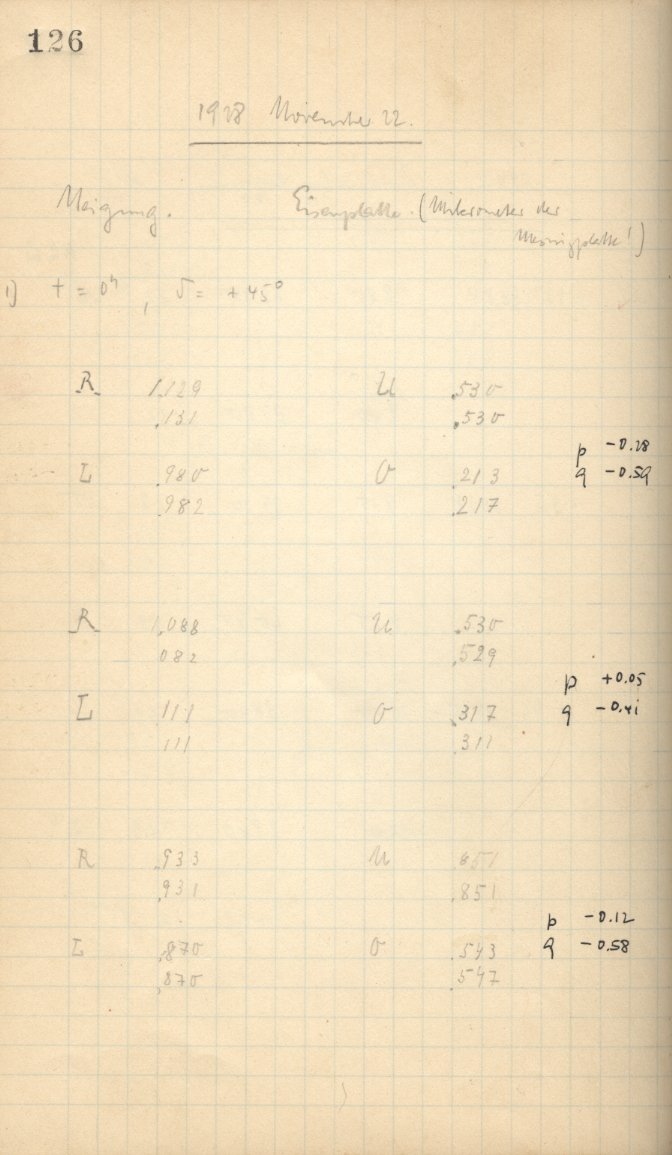 126
1928 November 22.
Neigung. Eisenplatte. (Mikrometer der
Messingplatte!)
1) t = 0h, δ = +45°
R 1.129 U .530
.131 .530
p -0.28
L .980 O .213 q -0.59
.982 .217
R 1.088 U .530
082 .529
p +0.05
L .111 O .317 q -0.41
111 .311
R .933 U 851
.931 .851
p -0.12
L .870 O .543 q -0.58
.870 .547